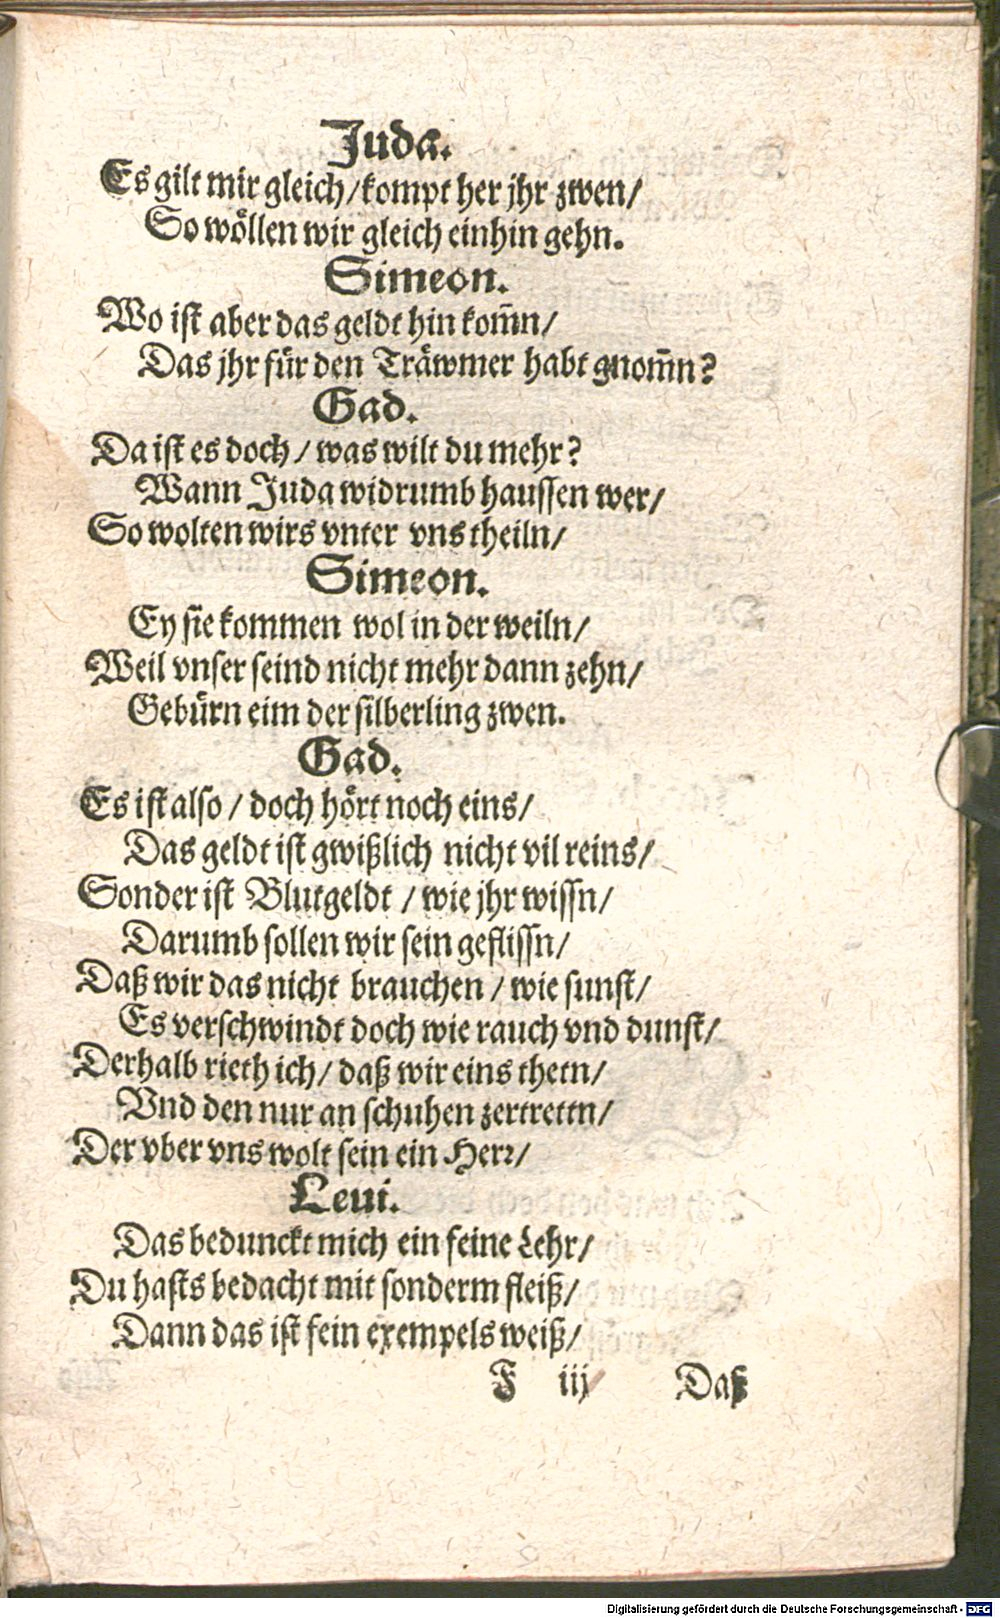 Juda.
Es gilt mir gleich/kompt her jhr zwen/
So wöllen wir gleich einhin gehn.
Simeon.
Wo ist aber das geldt hin kom̃n/
Das jhr für den Träwmer habt gnom̃n?
Gad.
Da ist es doch/ was wilt du mehr?
Wann Juda widrumb haussen wer/
So wolten wirs vnter vns theiln/
Simeon.
Ey sie kommen wol in der weiln/
Weil vnser seind nicht mehr dann zehn/
Gebürn eim der silberling zwen.
Gad.
Es ist also/ doch hört noch eins/
Das geldt ist gwißlich nicht vil reins/
Sonder ist Blutgeldt/ wie jhr wissn/
Darumb sollen wir sein geflissn/
Daß wir das nicht brauchen/ wie sunst/
Es verschwindt doch wie rauch vnd dunst/
Derhalb rieth ich/ daß wir eins thetn/
Vnd den nur an schuhen zertrettn/
Der vber vns wolt sein ein Herr/
Leui.
Das bedunckt mich ein feine Lehr/
Du hasts bedacht mit sonderm fleiß/
Dann das ist fein exempels weiß/
F iij Daß
Digitalisierung gefördert durch die Deutsche Forschungsgemeinschaft - DFG